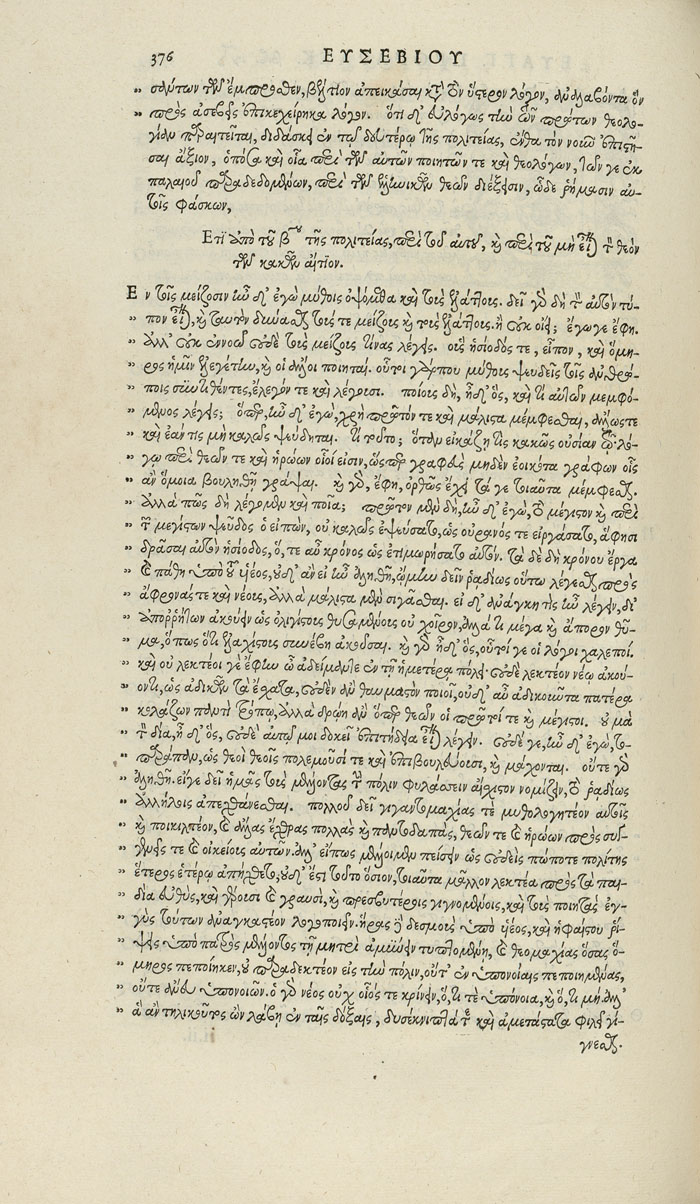 376 ΕΥΣΕΒΙΟΥ
πρὸς ἀσεβεῖς ἐπικεχείρηκα λόγον. ὅτι δ' εὐλόγως τὴν τῶν πρώτων θεολο-
γίαν παραιτεῖται, διδάσκει ἐν τῷ δευτέρῳ τῆς πολιτείας, ἔνθα τὸν νοῦν ἐπιστῆ-
σαι ἄξιον, ὁπόσα καὶ οἷα περὶ τῶν αὐτῶν ποιητῶν τε καὶ θεολόγων, τῶν γε ἐκ
παλαιοῦ παραδεδομένων, περὶ τῶν ἑλληνικῶν θεῶν διέξεισιν, ὧδε ῥήμασιν αὐ-
τοῖς φάσκων,
Ἔτι ἀπὸ τοῦ β τῆς πολιτείας, περὶ τοῦ αὐτοῦ, καὶ περὶ τοῦ μὴ εἶναι τὸν θεὸν
τῶν κακῶν αἴτιον.
Ἐν τοῖς μείζοσιν ἦν δ' ἐγὼ μύθοις ὀψόμεθα καὶ τοὺς ἐλάττους. δεῖ γὰρ δὴ τὸν αὐτὸν τύ-
" πον εἶναι, καὶ ταυτὸν δύνασθαι τούς τε μείζους καὶ τοὺς ἐλάττους. ἢ οὐκ οἴει; ἔγωγε ἔφη.
" ἀλλ' οὐκ ἐννοῶ οὐδὲ τοὺς μείζους τίνας λέγεις. οὓς ἡσίοδός τε, εἶπον, καὶ ὅμη-
" ρος ἡμῖν ἐλεγέτην, καὶ οἱ ἄλλοι ποιηταί. οὗτοι γάρ που μύθους ψευδεῖς τοῖς ἀνθρώ-
" ποις συντιθέντες, ἔλεγόν τε καὶ λέγουσι. ποίους δή, ἦ δ' ὅς, καὶ τί αὐτῶν μεμφό-
" μενος λέγεις; ὅπερ, ἦν δ' ἐγώ, χρὴ πρῶτόν τε καὶ μάλιστα μέμφεσθαι, ἄλλως τε
" καὶ ἐάν τις μὴ καλῶς ψεύδηται. τί τοῦτο; ὅταν εἰκάζῃ τις κακῶς οὐσίαν τῷ λό-
" γῳ περὶ θεῶν τε καὶ ἡρώων οἷοί εἰσιν, ὥσπερ γραφεὺς μηδὲν ἐοικότα γράφων οἷς
" ἂν ὅμοια βουληθῇ γράψαι. καὶ γὰρ, ἔφη, ὀρθῶς ἔχει τά γε τοιαῦτα μέμφεσθαι.
" ἀλλὰ πῶς δὴ λέγομεν καὶ ποῖα; πρῶτον μὲν δὴ, ἦν δ' ἐγώ, τὸ μέγιστον καὶ περὶ
" τῶν μεγίστων ψεῦδος ὁ εἰπών, οὐ καλῶς ἐψεύσατο, ὡς οὐρανός τε εἰργάσατο, ἅ φησι
" δρᾶσαι αὐτὸν ἡσίοδος, ὅ, τε αὖ κρόνος ὡς ἐτιμωρήσατο αὐτόν. τὰ δὲ δὴ κρόνου ἔργα
" καὶ πάθη ὑπὸ τοῦ υἱέος, οὐδ' ἂν εἰ ἦν ἀληθῆ, ᾤμην δεῖν ῥᾳδίως οὕτω λέγεσθαι πρὸς
" ἄφρονάς τε καὶ νέους, ἀλλὰ μάλιστα μὲν σιγᾶσθαι. εἰ δ' ἀνάγκη τις ἦν λέγειν, δι'
" ἀποῤῥήτων ἀκούειν ὡς ὀλιγίστους θυσαμένους οὐ χοῖρον, ἀλλά τι μέγα καὶ ἄπορον θῦ-
" μα, ὅπως ὅτι ἐλαχίστοις συνέβη ἀκοῦσαι. καὶ γὰρ ἦ δ' ὅς, οὗτοί γε οἱ λόγοι χαλεποί.
" καὶ οὐ λεκτέοι γε ἔφην ὦ ἀδείμαντε ἐν τῇ ἡμετέρᾳ πόλει. οὐδὲ λεκτέον νέῳ ἀκού-
" οντι, ὡς ἀδικῶν τὰ ἔσχατα, οὐδὲν ἂν θαυμαστὸν ποιοῖ, οὐδ' αὖ ἀδικοῦντα πατέρα
" κολάζων παντὶ τρόπῳ, ἀλλὰ δρῴη ἂν ὅπερ θεῶν οἱ πρῶτοί τε καὶ μέγιστοι. οὐ μὰ
" τὸν δία, ἦ δ' ὅς, οὐδὲ αὐτῷ μοι δοκεῖ ἐπιτήδεια εἶναι λέγειν. οὐδέ γε, ἦν δ' ἐγώ, τὸ
" παράπαν, ὡς θεοὶ θεοῖς πολεμοῦσί τε καὶ ἐπιβουλεύουσι, καὶ μάχονται. οὔτε γὰρ
" ἀληθῆ. εἴ γε δεῖ ἡμᾶς τοὺς μέλλοντας τὴν πόλιν φυλάσσειν αἴσχιστον νομίζειν, τὸ ῥᾳδίως
" ἀλλήλοις ἀπεχθάνεσθαι. πολλοῦ δεῖ γιγαντομαχίας τε μυθολογητέον αὐτοῖς
" καὶ ποικιλτέον, καὶ ἄλλας ἔχθρας πολλὰς καὶ παντοδαπάς, θεῶν τε καὶ ἡρώων πρὸς συγ-
" γενεῖς τε καὶ οἰκείους αὐτῶν. ἀλλ' εἴ πως μέλλοιμεν πείσειν ὡς οὐδεὶς πώποτε πολίτης
" ἕτερος ἑτέρῳ ἀπήχθετο, οὐδ' ἔστι τοῦτο ὅσιον, τοιαῦτα μᾶλλον λεκτέα πρὸς τὰ παι-
" δία εὐθὺς, καὶ γέρουσι καὶ γραυσὶ, καὶ πρεσβυτέροις γιγνομένοις, καὶ τοὺς ποιητὰς ἐγ-
" γὺς τούτων ἀναγκαστέον λογοποιεῖν. ἥρας δὲ δεσμοὺς ὑπὸ υἱέος, καὶ ἡφαίστου ῥί-
" ψεις ὑπὸ πατρὸς μέλλοντος τῇ μητρὶ ἀμύνειν τυπτομένῃ, καὶ θεομαχίας ὅσας ὅ-
" μηρος πεποίηκεν, οὐ παραδεκτέον εἰς τὴν πόλιν, οὔτ' ἐν ὑπονοίαις πεποιημένας,
" οὔτε ἄνευ ὑπονοιῶν. ὁ γὰρ νέος οὐχ οἷός τε κρίνειν, ὅ, τι τε ὑπόνοια, καὶ ὅ, τι μή. ἀλλ'
" ἃ ἂν τηλικοῦτος ὢν λάβῃ ἐν ταῖς δόξαις, δυσέκνιπτά τε καὶ ἀμετάστατα φιλεῖ γί-
γνεσθαι.